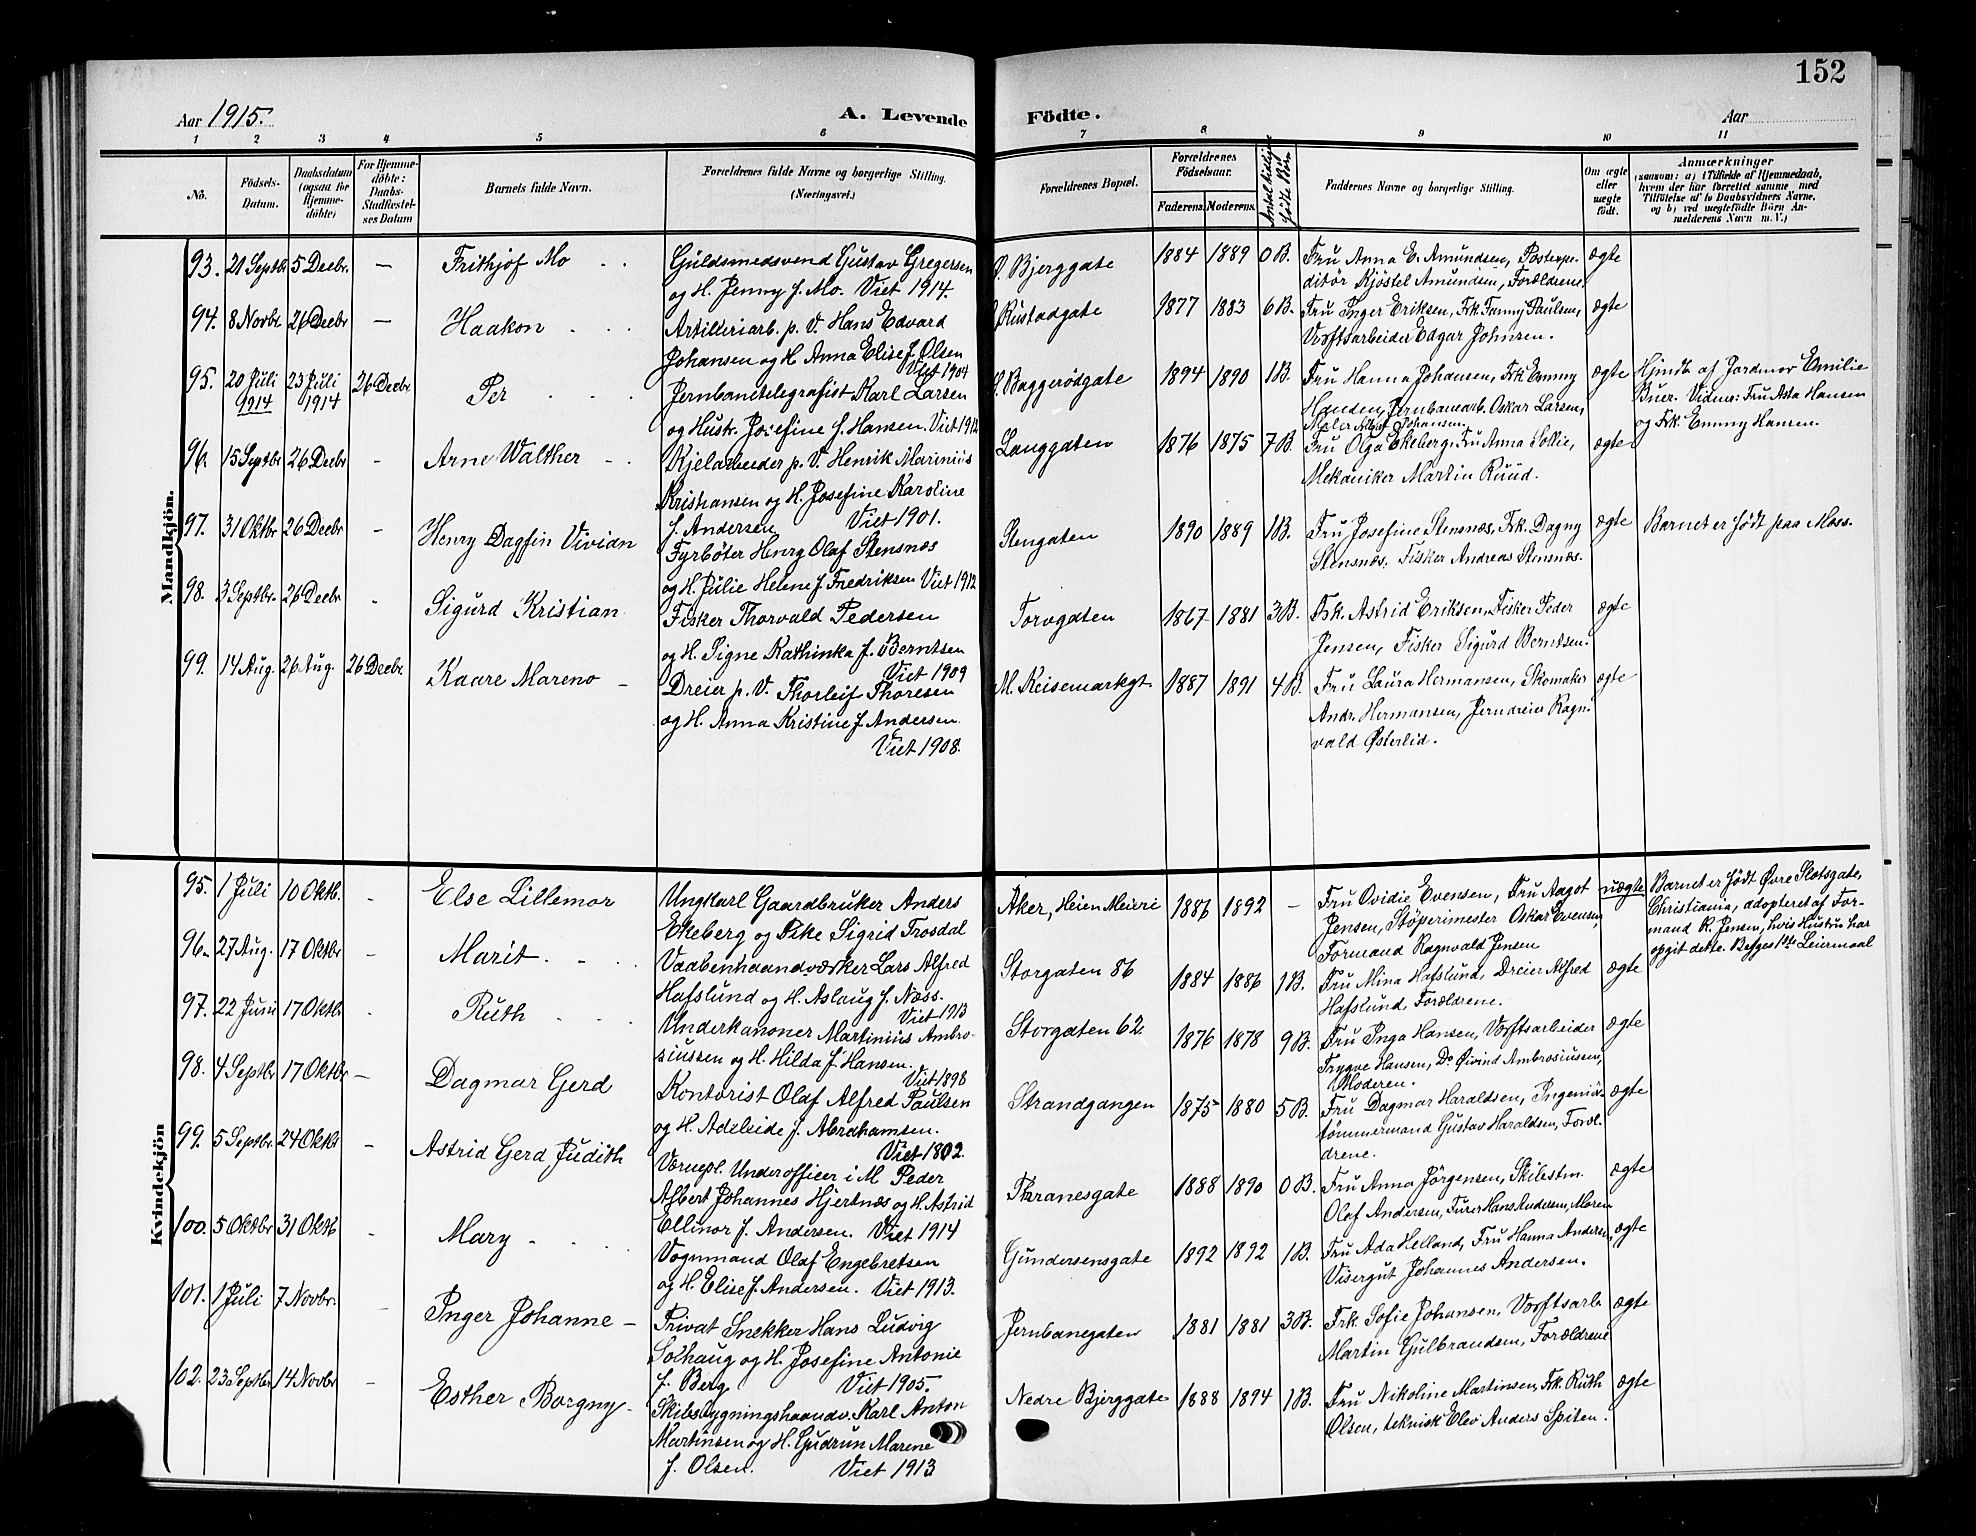 152
Aar 1915.
A. Levende Födte.
Aar
1 2 3 4 5 6 7 8 9 10 11
No.
Födsels-Datum.
Daabsdatum (ogsaa for Hjemme-döbte)
For Hjemme-döbte: Daabs-Stadfæstelses Datum
Barnets fulde Navn.
Forældrenes fulde Navne og borgerlige Stilling. (Næringsvei.)
Forældrenes Bopæl.
Forældrenes Födselsaar.
Faderens. Moderens.
Antal tidligere födte Børn
Faddernes Navne og borgerlige Stilling.
Om ægte eller uægte födt.
Anmærkninger
(saasom: a) i Tilfælde af Hjemmedaab,
hvem der har forrettet samme, med
Tilföielse af to Daabsvidners Navne,
og b) ved uægtefödte Börn An-
melderens Navn m. V.)
Mandkjön.
93. 21 Septbr 5 Decbr. — Frithjof Mo
Guldsmedsvend Gustav Gregersen
og H. Jenny f. Mo. Viet 1914.
Ø. Bjerggate 1884 1889 0 B
Fru Anna E. Amundsen, Postexpe-
ditør Kjøstel Amundsen, Forældrene.
ægte
94. 8 Novbr 26 Decbr — Haakon
Artilleriarb. p. V. Hans Edvard
Johansen og H. Anna Elise f. Olsen
Viet 1904
Rustadgate 1877 1883 6 B.
Fru Inger Eriksen, Frk. Fanny Paulsen,
Værftsarbeider Edgar Johnsen.
ægte
95. 20 Juli 1914 23 Juli 1914 26 Decbr Per
Jernbanetelegrafist Karl Larsen
og Hustr. Josefine f. Hansen. Viet 1912
Baggerødgate 1894 1890 1 B.
Fru Hanna Johansen, Frk Emmy
Hansen, Jernbanearb. Oskar Larsen,
Maler Johansen
ægte
Hjmdt. af Jordmor Emilie
Buer. Vidner: Fru Asta Hansen
og Frk. Emmy Hansen.
96. 15 Septbr 26 Decbr - Arne Walther
Kjelarbeider p. V. Henrik Marinius
Kristiansen og H. Josefine Karoline
f. Andersen Viet 1901.
Langgaten 1876 1875 7 B.
Fru Olga Ekeberg, Fru Anna Sollie,
Mekaniker Martin Ruud.
ægte
97. 31 Oktbr 26 Decbr - Henry Dagfin Vivian
Fyrbøter Henry Olaf Stensnæs
og H. Julie Helene f. Fredriksen Viet 1912
Stengaten 1890 1889 1 B.
Fru Josefine Stensnæs, Frk. Dagny
Stensnæs, Fisker Andreas Stensnæs.
ægte
Barnet er født paa Moss.
98. 3 Septbr. 26 Decbr - Sigurd Kristian
Fisker Thorvald Pedersen
og H. Signe Kathinka f. Berntsen
Viet 1909
Torvgaten 1867 1881 3 B.
Frk. Astrid Eriksen, Fisker Peder
Jensen, Fisker Sigurd Berntsen.
ægte
99. 14 Aug. 26 Aug. 26 Decbr. Kaare Mareno
Dreier p. V. Thorleif Thoresen
og H. Anna Kristine f. Andersen
Viet 1908.
M. Reisemarkgt 1887 1891 4 B.
Fru Laura Hermansen, Skomaker
Andr. Hermansen, Jerndreier Ragn-
vald Østerlid.
ægte
Kvindekjön
95. 1 Juli 10 Oktb. - Else Lillemor
Ungkarl Gaardbruker Anders
Ekeberg og Pike Sigrid Trosdal
Aker, Heien Meieri 1886 1892 —
Fru Ovidie Evensen, Fru Aagot
Jensen, Støperimester Oskar Evensen,
Formand Ragnvald Jensen
uægte
Barnet er født Øvre Slotsgate,
Christiania, adopteret af For-
mand R. Jensen, hvis Hustru har
opgit dette. Begges 1ste Leiermaal
96. 27 Aug. 17 Oktbr - Marit
Vaabenhaandværker Lars Alfred
Hafslund og H. Aslaug f. Næss.
Viet 1913
Storgaten 86 1884 1886 1 B.
Fru Mina Hafslund, Dreier Alfred
Hafslund, Forældrene.
ægte
97. 22 Juni 17 Oktbr. - Ruth
Underkanoner Martinius Ambro-
siussen og H. Hilda f. Hansen.
Viet 1898
Storgaten 62 1876 1878 9 B.
Fru Inga Hansen, Værftsarbeider
Trygve Hansen, Do Øivind Ambrosiussen,
Moderen.
ægte
98. 4 Septbr 17 Oktbr — Dagmar Gerd
Kontorist Olaf Alfred Paulsen
og H. Adeleide f. Abrahamsen.
Viet 1802.
Strandgangen 1875 1880 5 B.
Fru Dagmar Haraldsen, Ingeniør-
tømmermand Gustav Haraldsen, Foræl-
drene.
ægte
99. 5 Septbr. 24 Oktbr - Astrid Gerd Judith
Vernepl. Underofficer i M. Peder
Albert Johannes Hjertnæs og H. Astrid
Ellinor f. Andersen. Viet 1914
Thranesgate 1888 1890 0 B.
Fru Anna Jørgensen, Skilestm.
Olaf Andersen, Furer Hans Andersen, Moren
ægte
100. 5 Oktbr 31 Oktb - Mary
Vognmand Olaf Engebretsen
og H. Elise f. Andersen. Viet 1913.
Gundersensgate 1892 1892 1 B.
Fru Ada Helland, Fru Hanna Andersen,
Visergut Johannes Andersen.
ægte
101. 1 Juli 7 Novbr. - Inger Johanne
Privat Snekker Hans Ludvig
Solhaug og H. Josefine Antonie
f. Berg Viet 1905.
Jernbanegaten 1881 1881 3 B.
Frk Sofie Johansen, Værftsarb.
Martin Gulbrandsen, Forældrene
ægte
102. 23 Septbr 14 Novbr - Esther Borgny
Skibsbygningshaandv. Karl Anton
Martinsen og H. Gudrun Marene
f. Olsen. Viet 1913
Nedre Bjerggate 1888 1894 1 B.
Fru Nikoline Martinsen, Frk. Ruth
Olsen, teknisk Elev Anders Spiten.
ægte